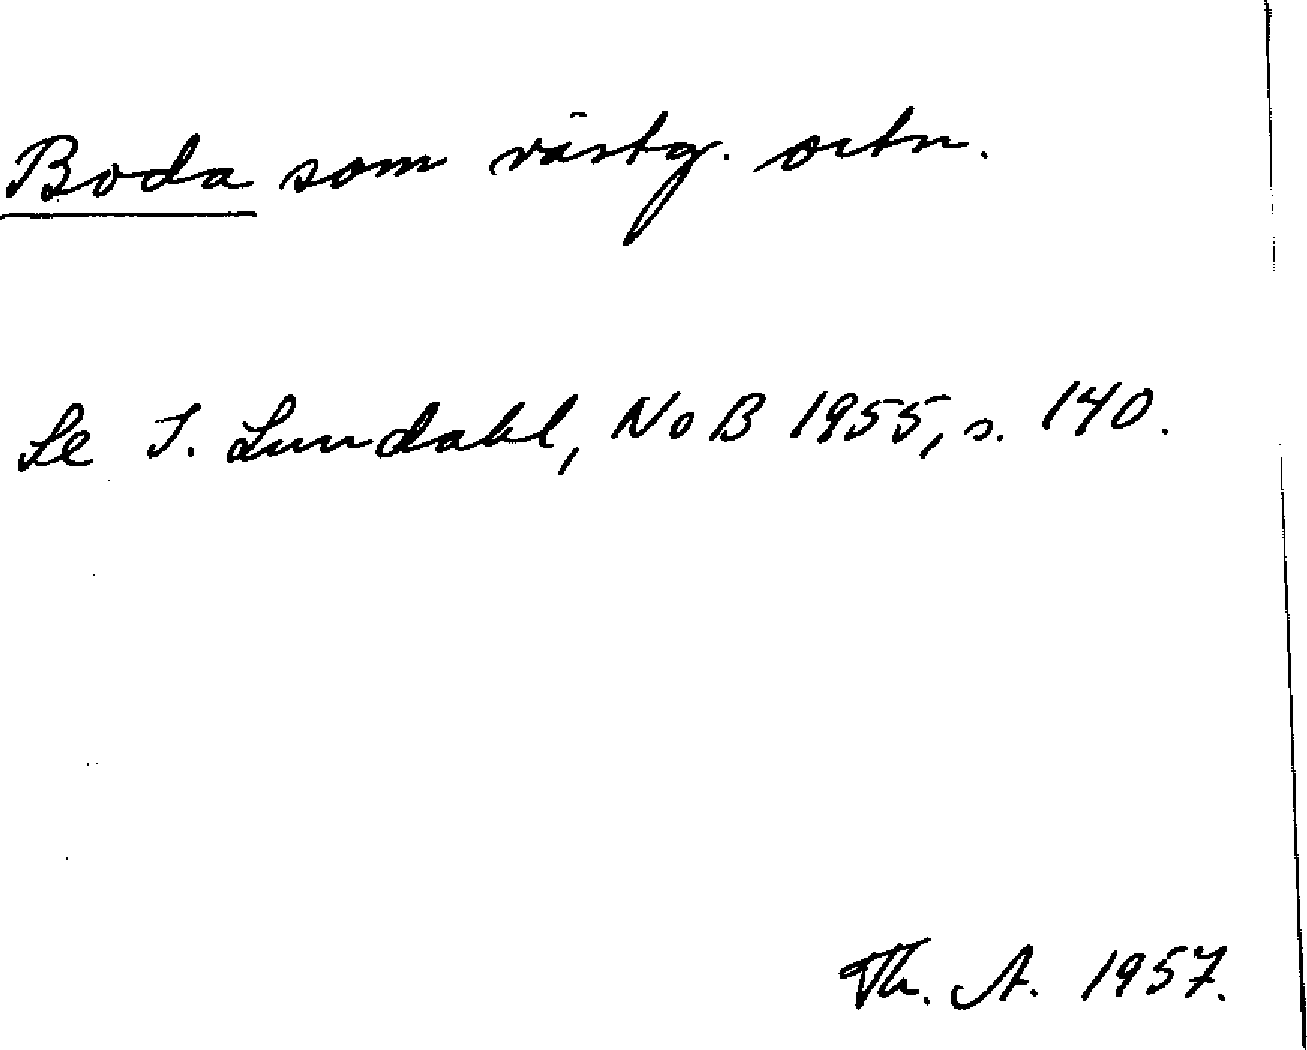 Boda som västg. ortn.
Se I. Lundahl, NoB 1955, s. 140.
Th. A. 1957.